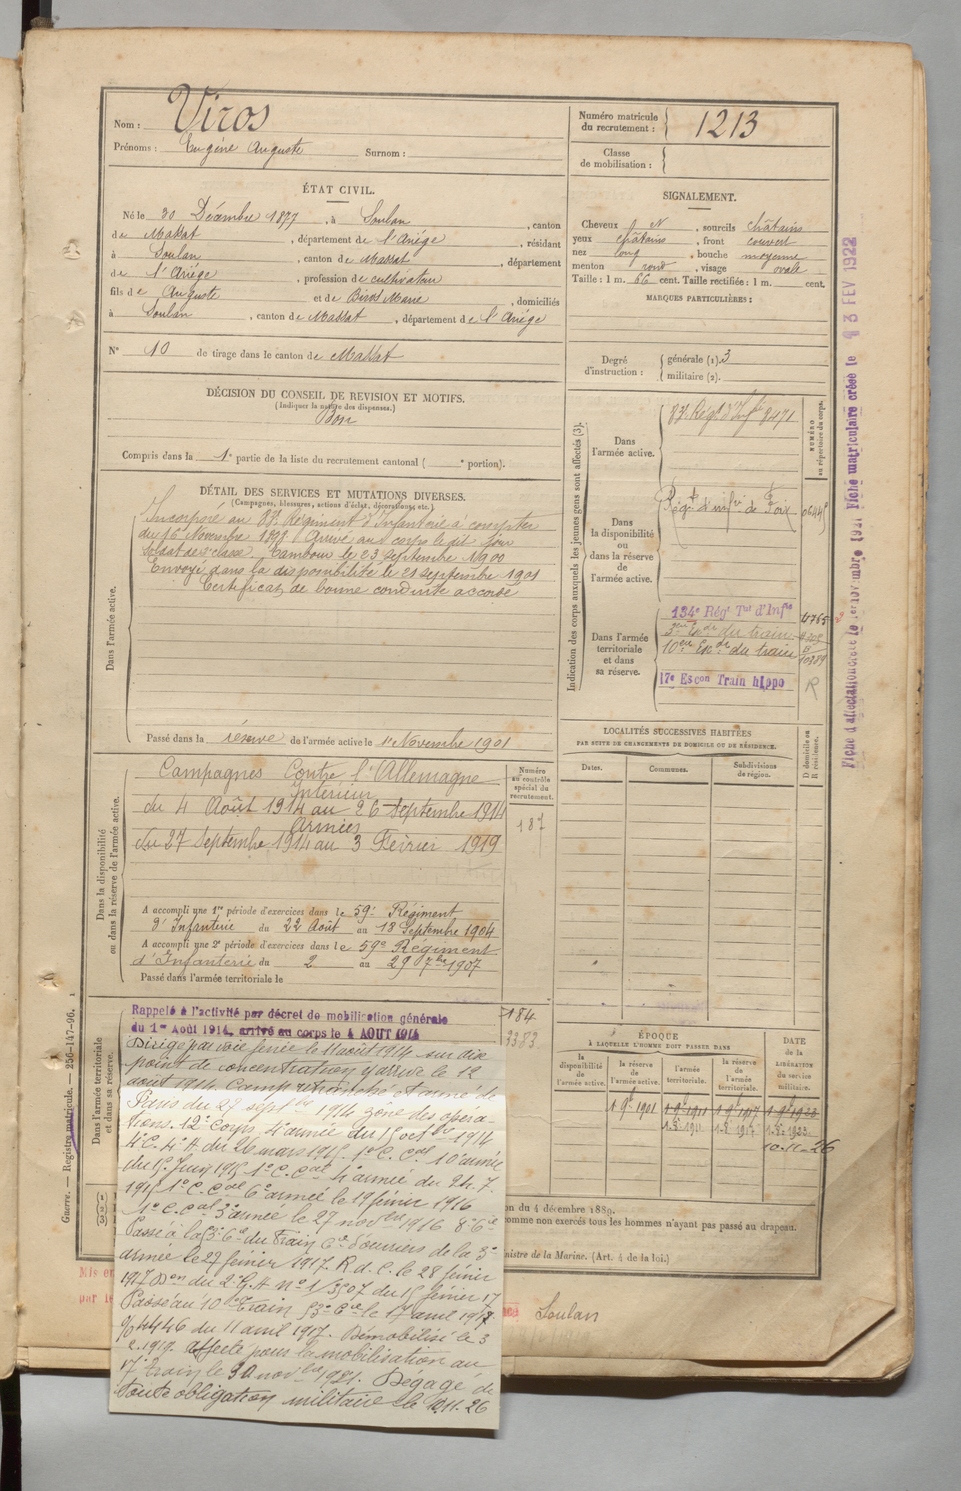 Nom : Viros
Prénoms : Eugène Auguste Surnom :
Numéro matricule du recrutement : 1213
Classe de mobilisation :
ÉTAT CIVIL.
Né le 30 Décembre 1877, à Soulan, canton
de Massat, département de l'Ariège, résidant
à Soulan, canton de Massat, département
de l'Ariège, profession de cultivateur
fils de Auguste et de Marie, domiciliés
à Soulan, canton de Massat, département de l'Ariège
N° 10 de tirage dans le canton de Massat
SIGNALEMENT.
Cheveux N, sourcils châtains
yeux châtains, front couvert
nez long, bouche moyenne
menton rond, visage ovale
Taille : 1 m. 66 cent. Taille rectifiée : 1 m. cent.
MARQUES PARTICULIÈRES :
Degré d'instruction : générale (1). 3
militaire (2).
DÉCISION DU CONSEIL DE REVISION ET MOTIFS.
(Indiquer la nature des dispenses.)
Bon
Compris dans la 1e partie de la liste du recrutement cantonal ( e portion).
DÉTAIL DES SERVICES ET MUTATIONS DIVERSES.
(Campagnes, blessures, actions d'éclat, décorations, etc.)
Dans l'armée active.
Incorporé au 83e Régiment d'Infanterie à compter
du 16 Novembre 1898. Arrivé au corps le dit jour
soldat de 2e classe. Tambour le 23 Septembre 1900
Envoyé dans la disponibilité le 21 septembre 1901
Certificat de bonne conduite accordé
Passé dans la réserve de l'armée active le 1er Novembre 1901
Indication des corps auxquels les jeunes gens sont affectés (3).
NUMÉRO au répertoire du corps.
Dans l'armée active.
83e Régt d'Infie 8471
Dans la disponibilité ou dans la réserve de l'armée active.
Régt d'infie de Foix
Dans l'armée territoriale et dans sa réserve.
134e Régt Tal d'Infie 4765
10ème Escon du train 10889
17e Escon Train hippo R
Dans la disponibilité ou dans la réserve de l'armée active.
Campagnes Contre l'Allemagne
Intérieur
du 4 Août 1914 au 26 Septembre 1914
Armées
du 27 Septembre 1914 au 3 Février 1919
Numéro au contrôle spécial du recrutement.
187
A accompli une 1re période d'exercices dans le 59e Régiment
d'Infanterie du 22 Août au 18 Septembre 1904
A accompli une 2e période d'exercices dans le 59e Régiment
d'Infanterie du 2 au 29 7bre 1907
Passé dans l'armée territoriale le
LOCALITÉS SUCCESSIVES HABITÉES
PAR SUITE DE CHANGEMENTS DE DOMICILE OU DE RÉSIDENCE.
Dates. Communes. Subdivisions de région. D domicile ou R résidence.
Dans l'armée territoriale et dans sa réserve.
Rappelé à l'activité par décret de mobilisation générale
du 1er Août 1914, arrivé au corps le 4 AOUT 1914
184
3383
Dirigé par voie ferrée le 11 août 1914 sur dix
point de concentration y arrive le 12
août 1914. Camp retranché et armé de
Paris du 27 septbre 1914 zone des opéra-
tions. 12e Corps 4e armée du 15 octbre 1914
4e C. 4e A. du 26 mars 1915. 1er C. Cal 10e armée
du 15 Juin 1915 1er C. Cal 2e armée du 24.7.
1915 1er C. Cal 6e armée le 19 février 1916
1er C. Cal 3e armée le 27 novbre 1916 8e Cie
armée le 27 février 1917. R.d.C. le 28 février
Passé au 10e Train 53e Cie le 17 avril 1917
du 11 avril 1917. Démobilisé le 3
2.1919. Affecté pour la mobilisation au
17e train le 30 novbre 1921. Dégagé de
toute obligation militaire le 10.11.26
ÉPOQUE
À LAQUELLE L'HOMME DOIT PASSER DANS
la disponibilité de l'armée active.
la réserve de l'armée active.
l'armée territoriale.
la réserve de l'armée territoriale.
DATE DE LA LIBÉRATION du service militaire.
1 9bre 1901 1 9bre 1911 1 9bre 1917 1 9bre 1923
10-11-26
on du 4 décembre 1889.
omme non exercés tous les hommes n'ayant pas passé au drapeau.
nistre de la Marine. (Art. 4 de la loi.)
Mis en
par le
Soulan
Guerre. — Registre matricule. — 256-147-96.
Fiche matriculaire créée le 3 FEV 1922